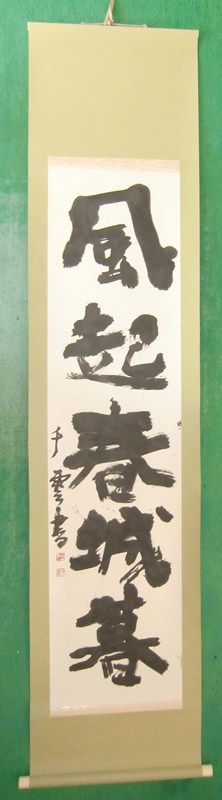 風起春城暮
千雲書